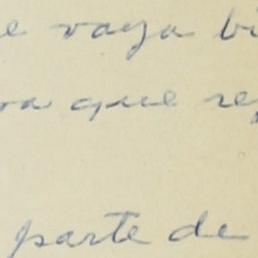 e vaya bi
va que re
parte de